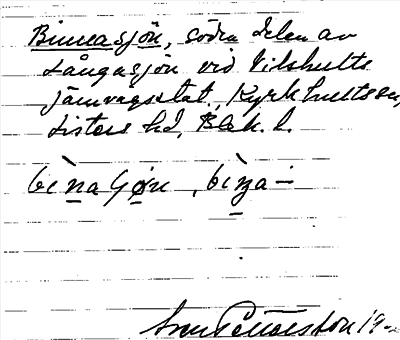 Binnasjön, södra delen av
Långasjön vid Vilshults
järnvägsstat. Kyrkhults sn,
Listers hd, Blek. l.
Sven Petterson 19